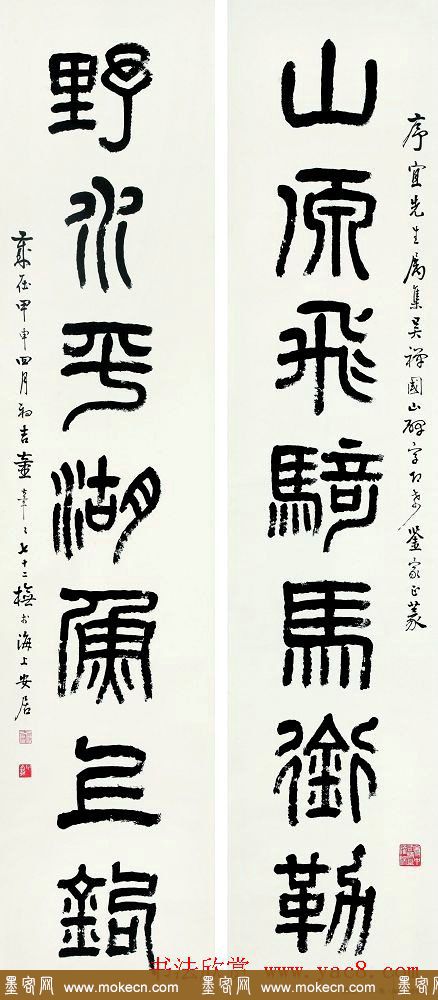 序宜先生屬集吳禪國山碑字即希鑒家正篆
山原飛騎馬銜勒
野水平湖魚上鉤
歲在甲申四月初吉童七十二橅於海上安居
书法欣赏 www.yac8.com
墨客网 www.mokecn.com 墨客网 www.mokecn.com